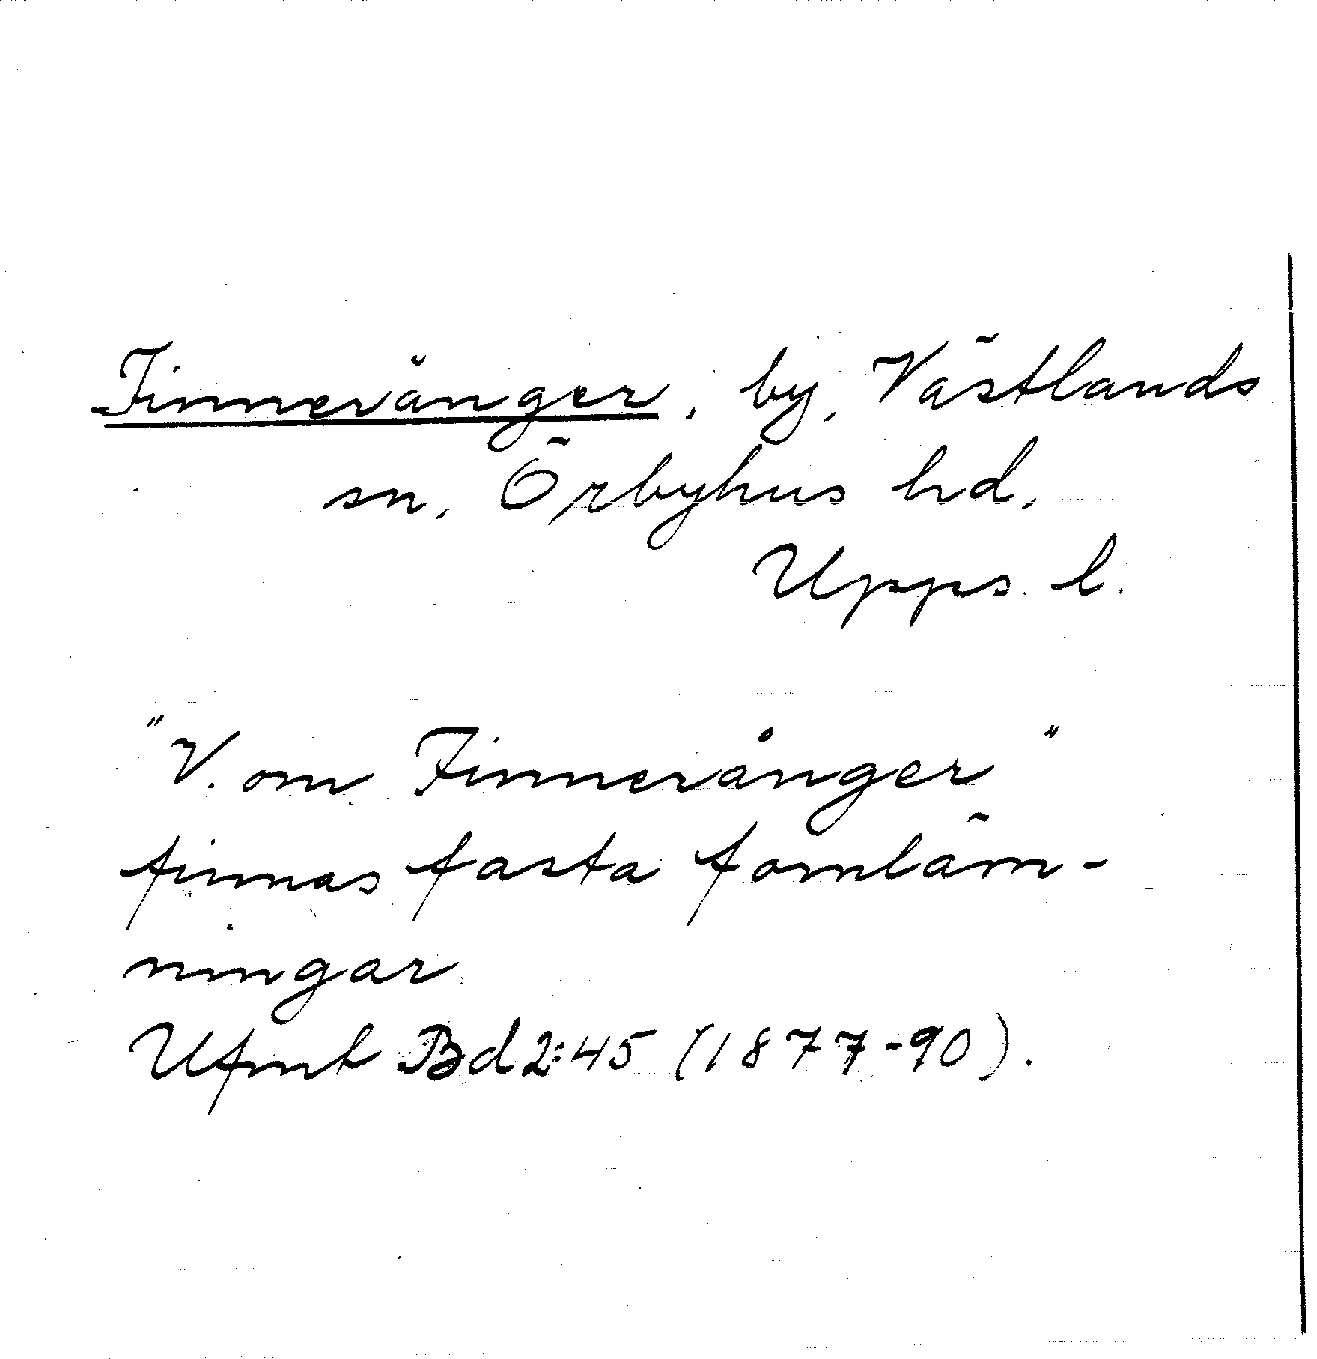 Finnerånger, by, Västlands
sn, Örbyhus hd,
Upps. l.
"V. om Finnerånger"
finnas fasta fornläm-
ningar
Ufmt Bd 2:45 (1877-90).